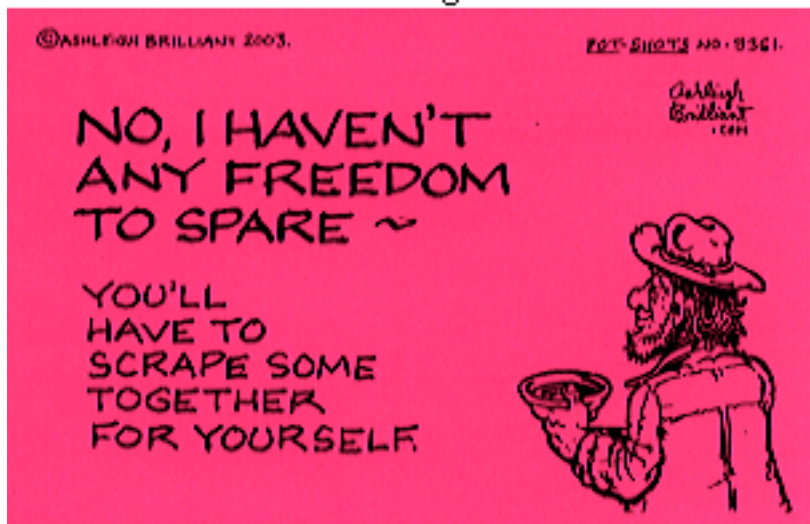 ©ASHLEIGH BRILLIANT 2003.
POT-SHOTS NO. 9361.
Ashleigh
Brilliant
.COM
NO, I HAVEN'T
ANY FREEDOM
TO SPARE ~
YOU'LL
HAVE TO
SCRAPE SOME
TOGETHER
FOR YOURSELF.